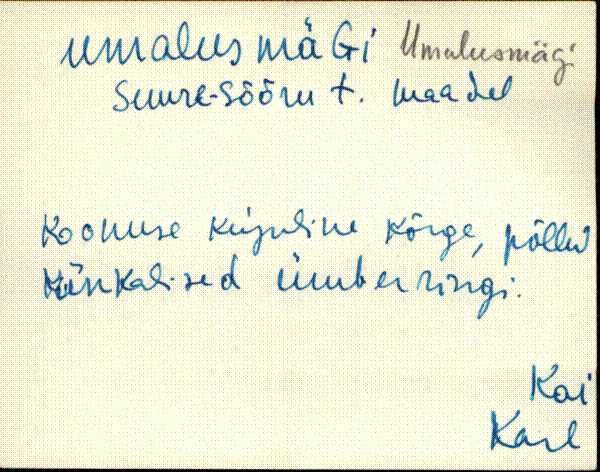 umalusmäGi Umalusmägi
Suure-Sõõru t. maadel
Koonuse kujuline kõrge, põllud
künkalised ümberringi.
Kai
Karl